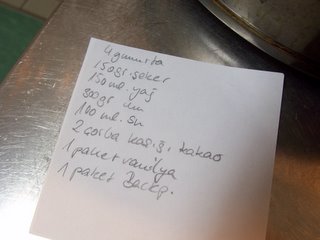 4 yumurta
150gr. şeker
150 ml. yağ
300gr un
100 ml. su
2 çorba kaşığı kakao
1 paket vanilya
1 paket Backp.